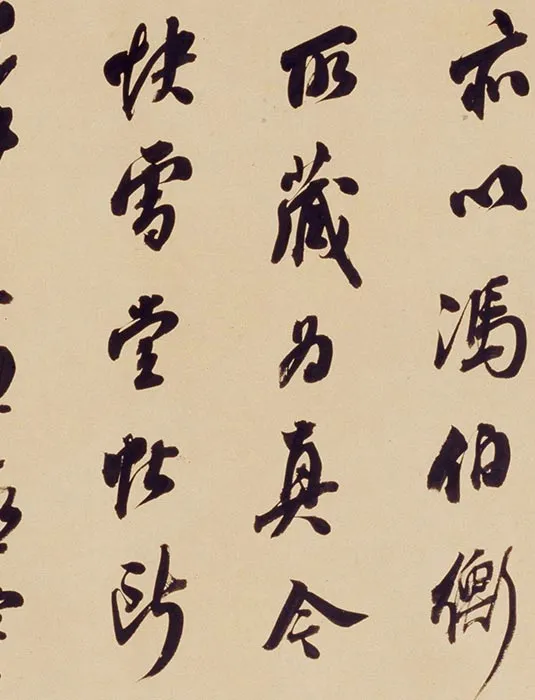 亦以馮伯衡
所藏為真今
快雪堂帖所